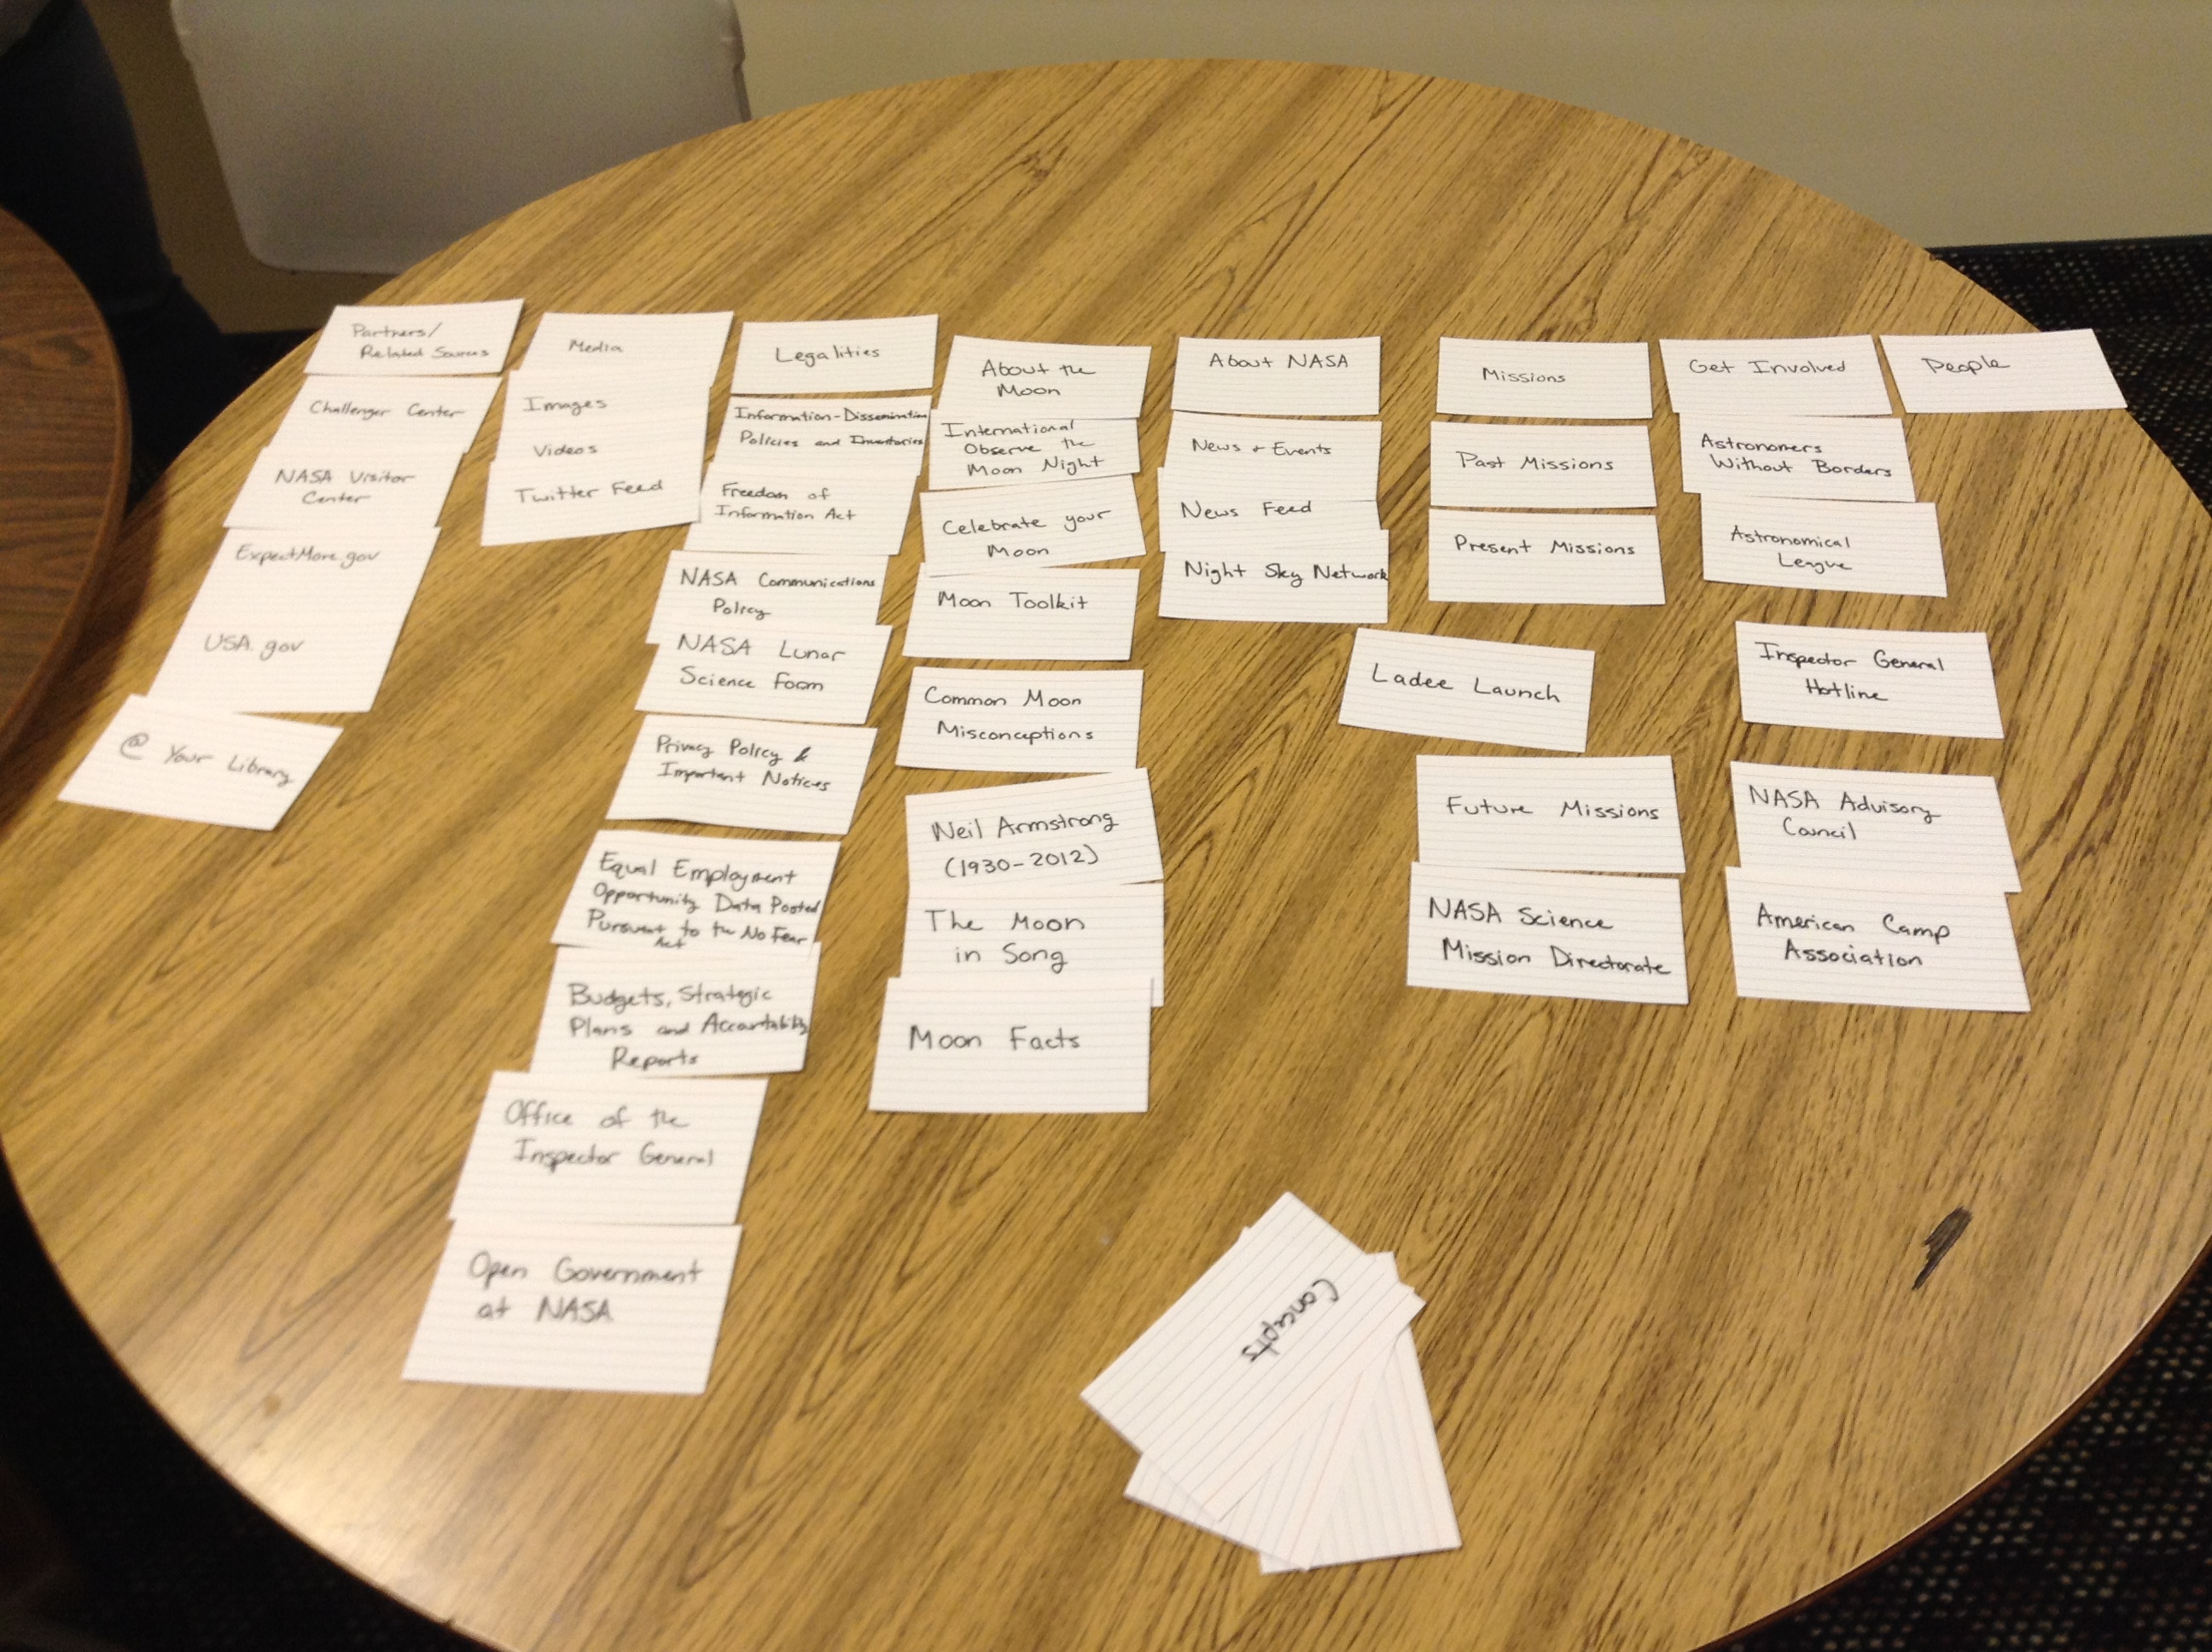 Partners/
Related Sources
Challenger Center
NASA Visitor
Center
ExpectMore.gov
USA.gov
@ Your Library
Media
Images
Videos
Twitter Feed
Legalities
Information-Dissemination
Policies and Inventories
Freedom of
Information Act
NASA Communications
Policy
NASA Lunar
Science Form
Privacy Policy &
Important Notices
Equal Employment
Opportunity Data Posted
Pursuant to the No Fear
Act
Budgets, Strategic
Plans and Accountability
Reports
Office of the
Inspector General
Open Government
at NASA
About the
Moon
International
Observe the
Moon Night
Celebrate your
Moon
Moon Toolkit
Common Moon
Misconceptions
Neil Armstrong
(1930-2012)
The Moon
in Song
Moon Facts
About NASA
News + Events
News Feed
Night Sky Network
Missions
Past Missions
Present Missions
Ladee Launch
Future Missions
NASA Science
Mission Directorate
Get Involved
Astronomers
Without Borders
Astronomical
League
Inspector General
Hotline
NASA Advisory
Council
American Camp
Association
People
Concepts